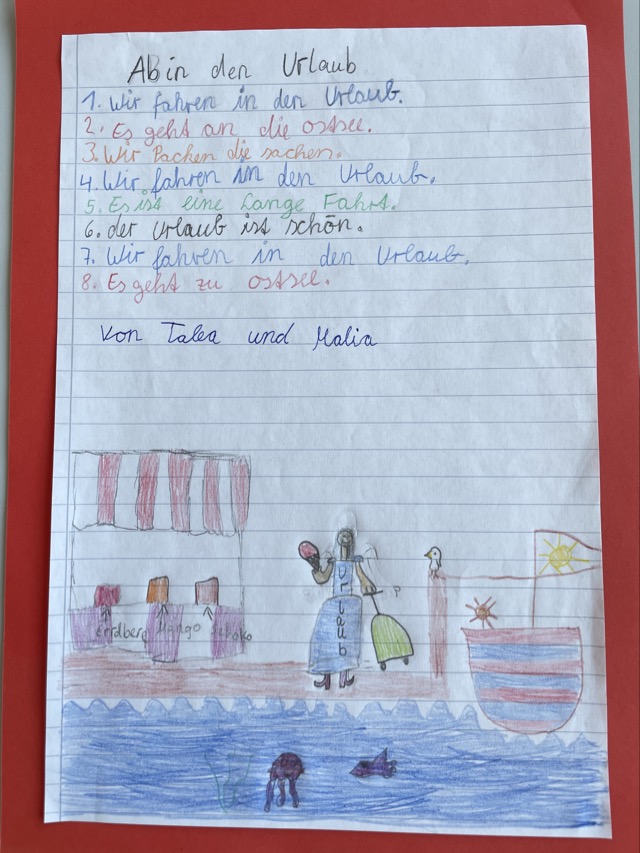 Ab in den Urlaub
1. Wir fahren in den Urlaub.
2. Es geht an die ostsee.
3. Wir Packen die sachen.
4. Wir fahren in den Urlaub.
5. Es ist eine Lange Fahrt.
6. der Urlaub ist schön.
7. Wir fahren in den Urlaub.
8. Es geht zu ostsee.
Von Talea und Malia
Errdberg Mango schoko
Urlaub